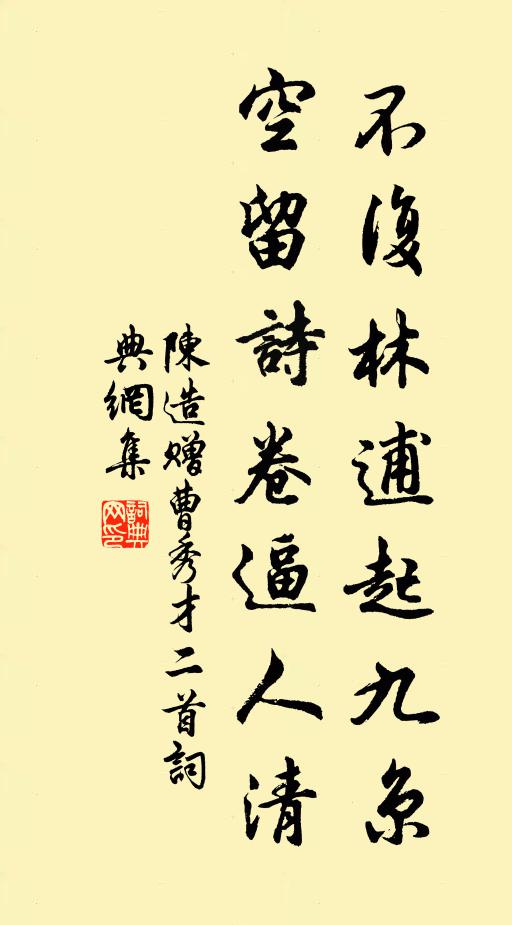 不復林逋起九京
空留詩卷逼人清
陳造赠曹秀才二首詞
典網集
詞典網印